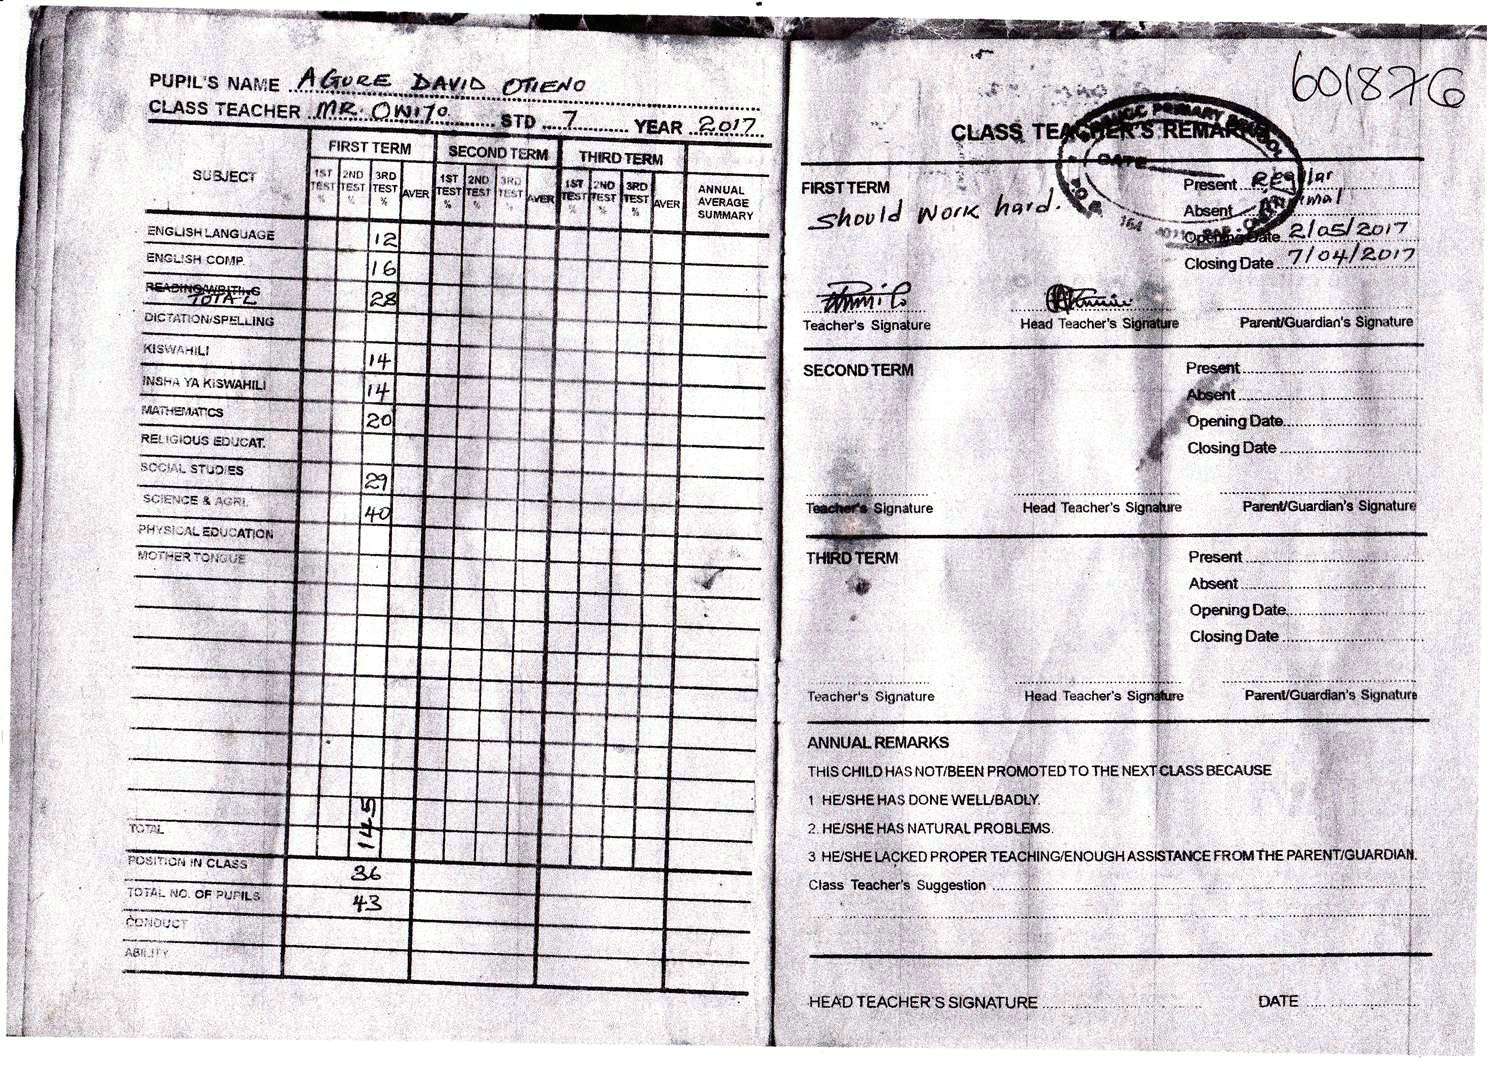 PUPIL'S NAME AGURE DAVID OTIENO
CLASS TEACHER MR. ONITO STD 7 YEAR 2017
SUBJECT FIRST TERM SECOND TERM THIRD TERM ANNUAL AVERAGE SUMMARY
1ST TEST % 2ND TEST % 3RD TEST % AVER 1ST TEST % 2ND TEST % 3RD TEST % AVER 1ST TEST % 2ND TEST % 3RD TEST % AVER
ENGLISH LANGUAGE 12
ENGLISH COMP. 16
READING/WRITING
TOTAL 28
DICTATION/SPELLING
KISWAHILI 14
INSHA YA KISWAHILI 14
MATHEMATICS 20
RELIGIOUS EDUCAT.
SOCIAL STUDIES 29
SCIENCE & AGRI. 40
PHYSICAL EDUCATION
MOTHER TONGUE
TOTAL 145
POSITION IN CLASS 36
TOTAL NO. OF PUPILS 43
CONDUCT
ABILITY
601876
CLASS TEACHER'S REMARKS
PRIMARY SCHOOL
DATE
P.O. B 164
FIRST TERM Present Regular
should work hard. Absent
Opening Date 2/05/2017
Closing Date 7/04/2017
Teacher's Signature Head Teacher's Signature Parent/Guardian's Signature
SECOND TERM Present
Absent
Opening Date
Closing Date
Teacher's Signature Head Teacher's Signature Parent/Guardian's Signature
THIRD TERM Present
Absent
Opening Date
Closing Date
Teacher's Signature Head Teacher's Signature Parent/Guardian's Signature
ANNUAL REMARKS
THIS CHILD HAS NOT/BEEN PROMOTED TO THE NEXT CLASS BECAUSE
1 HE/SHE HAS DONE WELL/BADLY.
2. HE/SHE HAS NATURAL PROBLEMS.
3 HE/SHE LACKED PROPER TEACHING/ENOUGH ASSISTANCE FROM THE PARENT/GUARDIAN.
Class Teacher's Suggestion
HEAD TEACHER'S SIGNATURE DATE